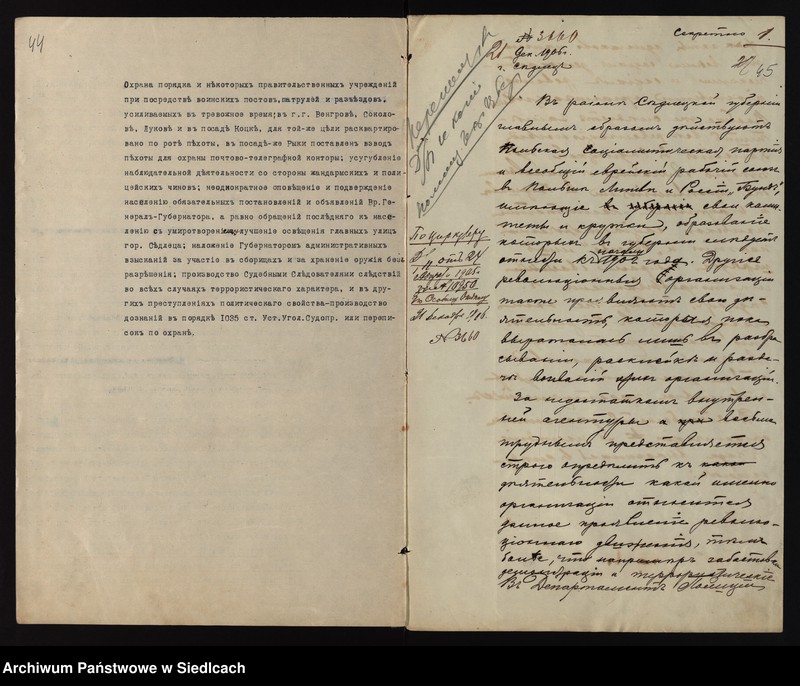 44
Охрана порядка и нѣкоторыхъ правительственныхъ учрежденій
при посредствѣ воинскихъ постовъ, патрулей и разъѣздовъ,
усиливаемыхъ въ тревожное время; въ г.г. Венгровѣ, Соколо-
вѣ, Луковѣ и въ посадѣ Коцкѣ, для той-же цѣли расквартиро-
вано по ротѣ пѣхоты, въ посадѣ-же Рыки поставленъ взводъ
пѣхоты для охраны почтово-телеграфной конторы; усугубленіе
наблюдательной дѣятельности со стороны жандармскихъ и поли-
цейскихъ чиновъ; неоднократное оповѣщеніе и подтвержденіе
населенію обязательныхъ постановленій и объявленій Вр.Ге-
нералъ-Губернатора, а равно обращеній послѣдняго къ насе-
ленію съ умиротвореніи; улучшеніе освѣщенія главныхъ улицъ
гор. Сѣдлеца; наложеніе Губернаторомъ административныхъ
взысканій за участіе въ сборищахъ и за храненіе оружія безъ
разрѣшенія; производство Судебными Слѣдователями слѣдствій
во всѣхъ случаяхъ террористическаго характера, и въ дру-
гихъ преступленіяхъ политическаго свойства-производство
дознаній въ порядкѣ 1035 ст. Уст.Угол.Судопр. или перепи-
сокъ по охранѣ.
Секретно 1.
№ 3660
21 Дек. 1906г.
г. Сѣдлецъ
45
Въ районѣ Сѣдлецкой губерніи
главнымъ образомъ дѣйствуютъ
Польская Соціалистическая партія
и всеобщій еврейскій рабочій союзъ
въ Польшѣ Литвѣ и Россіи „Бундъ",
имѣющіе свои коми-
теты и кружки, образованіе
которыхъ въ губерніи слѣдуетъ
отнести къ началу 1902 года. Другіе
революціонныя организаціи
также проявляютъ свою дѣ-
ятельность, которая пока
выразилась лишь въ разбра-
сываніи, расклейкѣ и разда-
чѣ воззваній этихъ организацій.
За недостаткомъ внутрен-
ней агентуры весьма
труднымъ представляется
строго опредѣлить къ
дѣятельности какой именно
организаціи относится
данное проявленіе револю-
ціоннаго движенія, тѣмъ
болѣе, что забастовки
демонстраціи и террористическіе
Въ Департаментъ Полиціи
По циркуляру
Д. П. отъ 24
1905г.
По Особому Отдѣлу
21 Декабр. 1906.
№ 3660
Archiwum Państwowe w Siedlcach